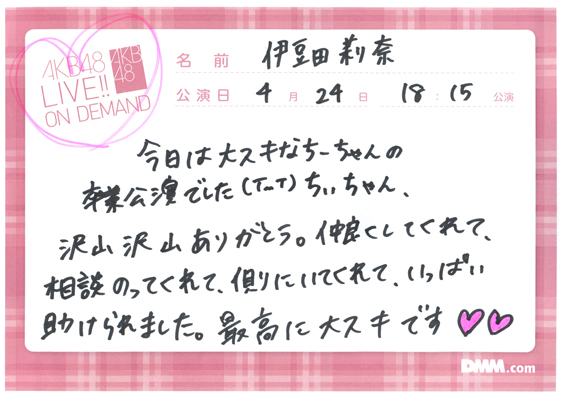 AKB48
LIVE!!
ON DEMAND
AKB
48
名前 伊豆田莉奈
公演日 4月24日 18:15公演
今日は大スキなちーちゃんの
卒業公演でした(T~T)ちぃちゃん、
沢山沢山ありがとう。仲良くしてくれて、
相談のってくれて、側りにいてくれて、いっぱい
助けられました。最高に大スキです♥♥
DMM.com